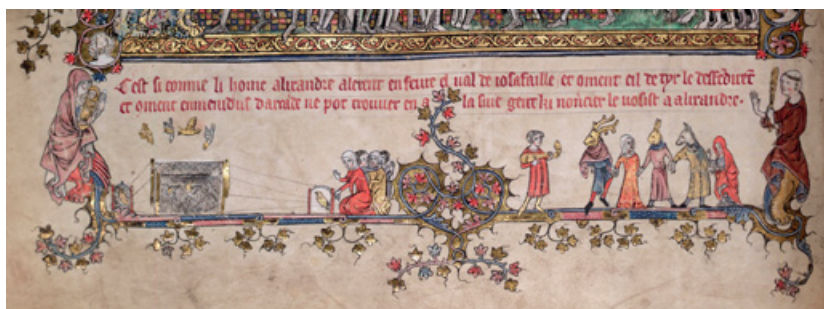 Cest si comme li home alixandre alerent en feure el ual de iosafaille et oment cil de tyr le
et oment emenidus darcade ne pot trouuer en la siue gent ki noncier le uosist a alixandre.